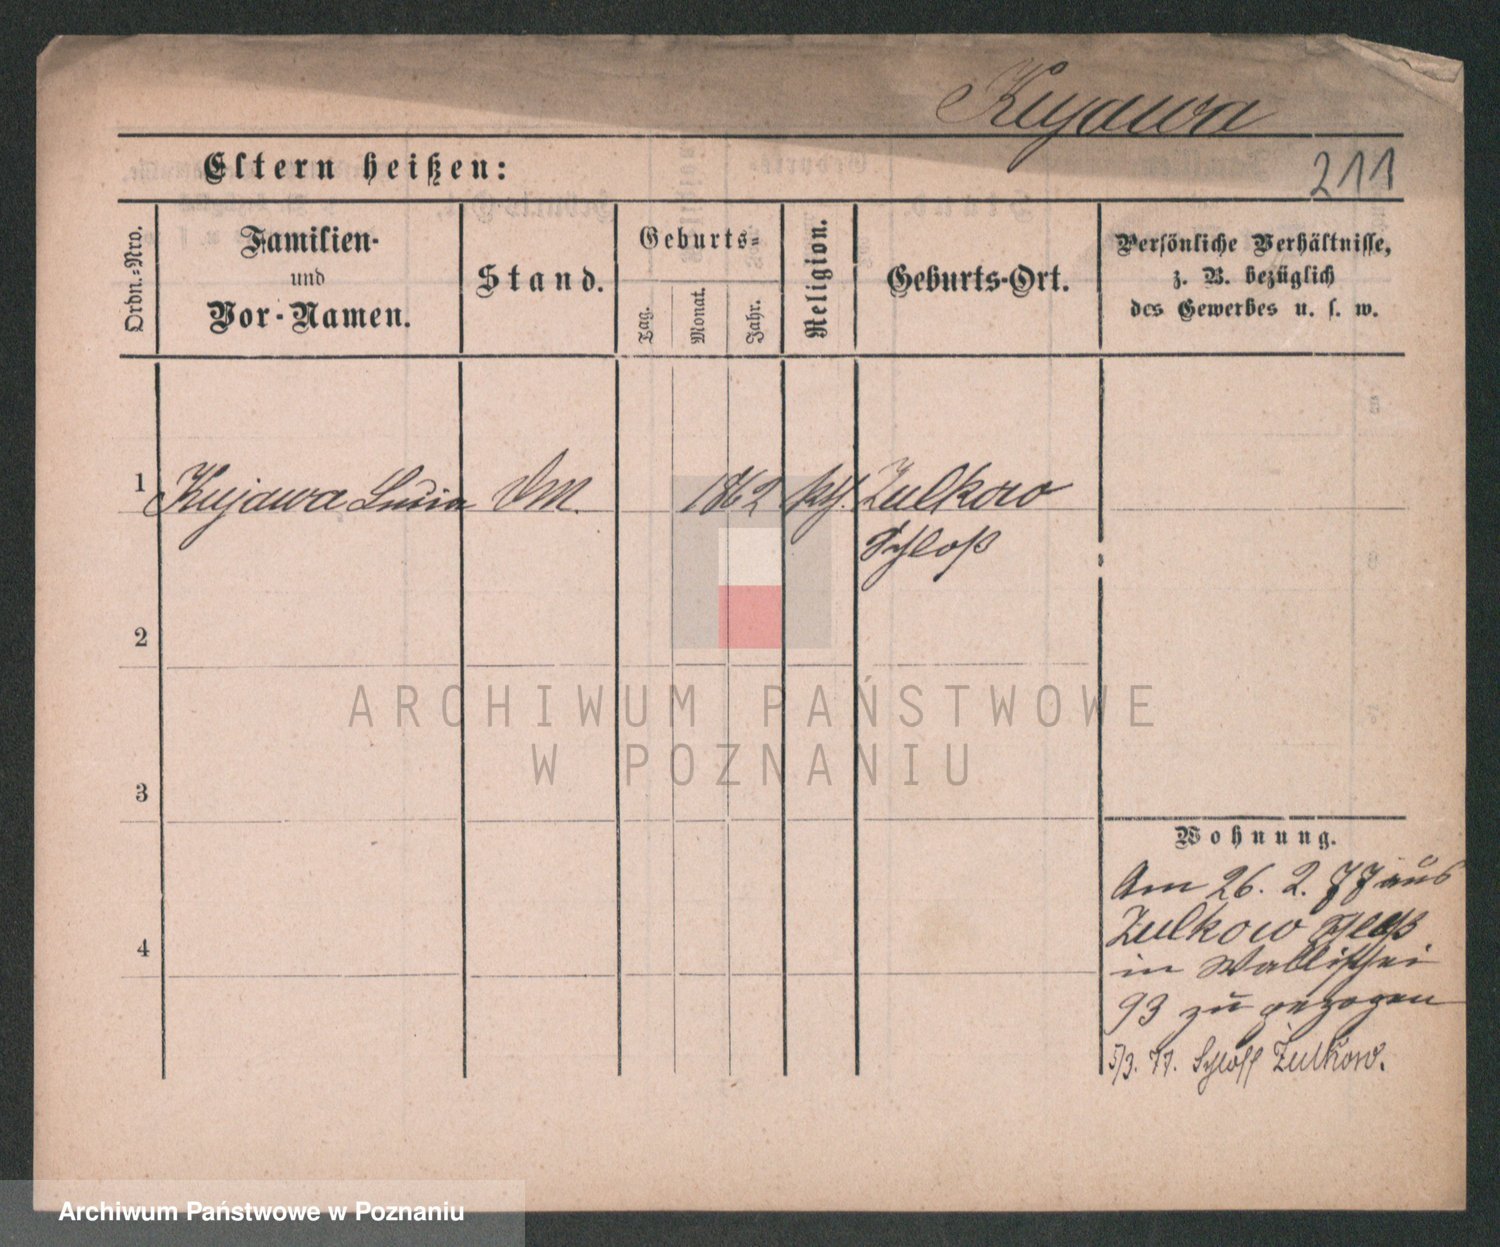 Kujawa
211
Eltern heißen:
Ordn.-Nro.
Familien-
und
Vor-Namen.
Stand.
Geburts-
Tag.
Monat.
Jahr.
Religion.
Geburts-Ort.
Persönliche Verhältnisse,
z. B. bezüglich
des Gewerbes u. s. w.
1 Kujawa Lucia DM. 1862 kth. Zulkowo
Schloß
2
3
4
Wohnung.
Am 26. 2. 77 aus
Zulkowo Schloß
in Wallischei
93 zu gezogen
5/3. 77. Schloß Zulkow.
ARCHIWUM PAŃSTWOWE
W POZNANIU
Archiwum Państwowe w Poznaniu